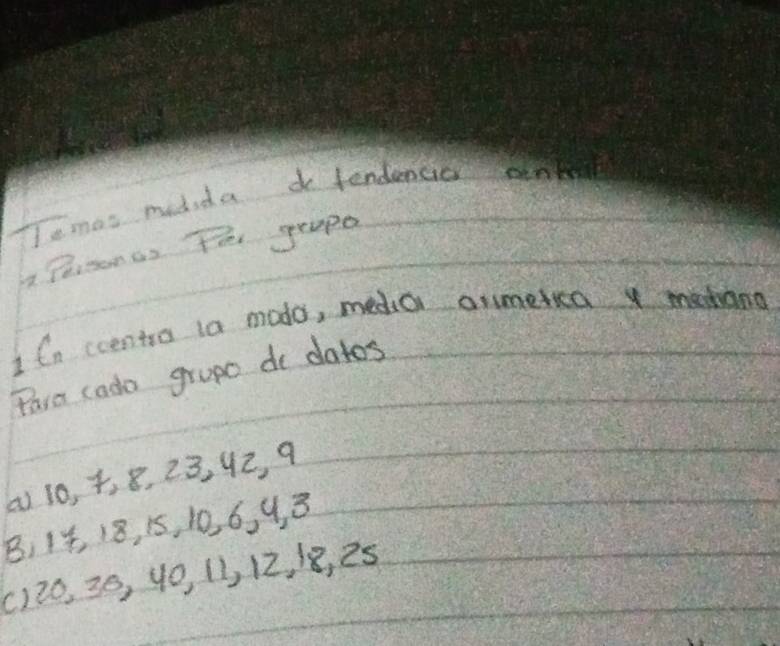 Temas medida de tendencia central
2 Personas Por grupo
1 En ccentra la moda, media arimetica y mediana
Para cada grupo de datos
a) 10, 7, 8, 23, 42, 9
B) 17, 18, 15, 10, 6, 4, 3
C) 20, 30, 40, 11, 12, 18, 25